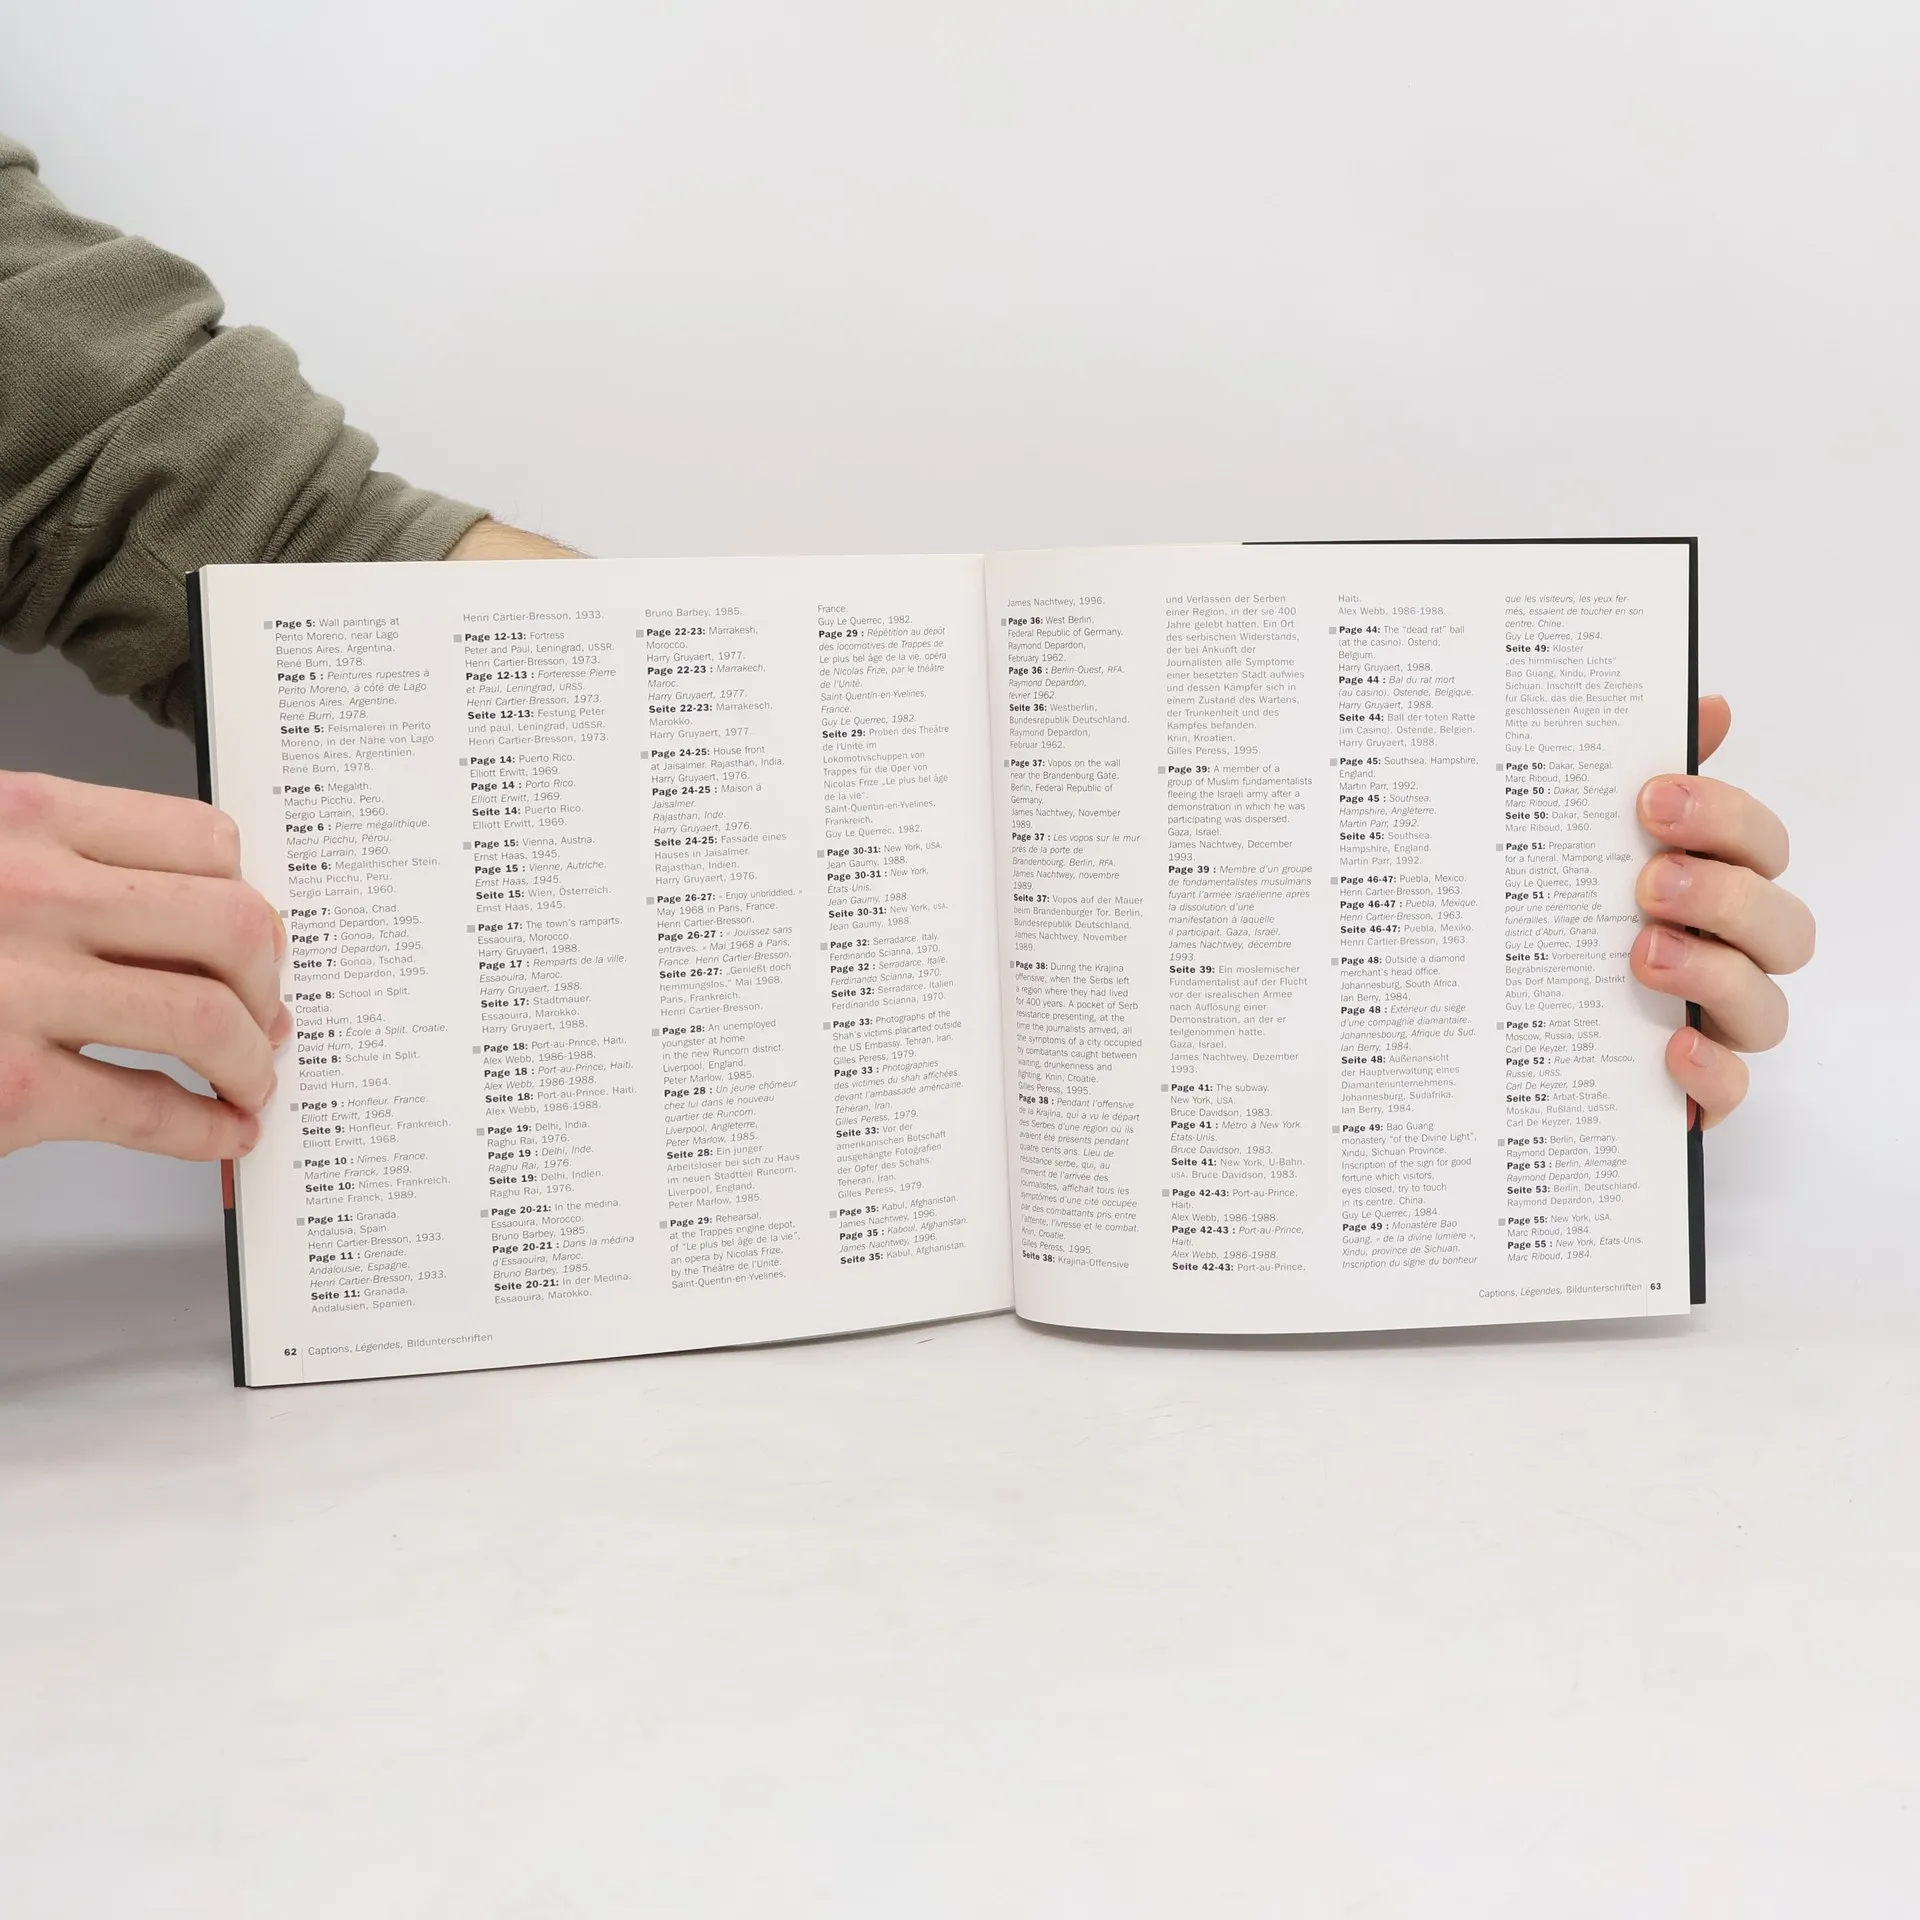 Page 5: Wall paintings at
Perito Moreno, near Lago
Buenos Aires. Argentina.
René Burri, 1978.
Page 5 : Peintures rupestres à
Perito Moreno, à côté de Lago
Buenos Aires. Argentine.
René Burri, 1978.
Seite 5: Felsmalerei in Perito
Moreno, in der Nähe von Lago
Buenos Aires. Argentinien.
René Burri, 1978.
Page 6: Megalith.
Machu Picchu, Peru.
Sergio Larrain, 1960.
Page 6 : Pierre mégalithique.
Machu Picchu, Pérou.
Sergio Larrain, 1960.
Seite 6: Megalithischer Stein.
Machu Picchu, Peru.
Sergio Larrain, 1960.
Page 7: Gonoa, Chad.
Raymond Depardon, 1995.
Page 7 : Gonoa, Tchad.
Raymond Depardon, 1995.
Seite 7: Gonoa, Tschad.
Raymond Depardon, 1995.
Page 8: School in Split.
Croatia.
David Hurn, 1964.
Page 8 : École à Split. Croatie.
David Hurn, 1964.
Seite 8: Schule in Split.
Kroatien.
David Hurn, 1964.
Page 9 : Honfleur. France.
Elliott Erwitt, 1968.
Seite 9: Honfleur. Frankreich.
Elliott Erwitt, 1968.
Page 10 : Nîmes. France.
Martine Franck, 1989.
Seite 10: Nîmes. Frankreich.
Martine Franck, 1989.
Page 11: Granada.
Andalusia, Spain.
Henri Cartier-Bresson, 1933.
Page 11 : Grenade.
Andalousie, Espagne.
Henri Cartier-Bresson, 1933.
Seite 11: Granada.
Andalusien, Spanien.
Henri Cartier-Bresson, 1933.
Page 12-13: Fortress
Peter and Paul, Leningrad, USSR.
Henri Cartier-Bresson, 1973.
Page 12-13 : Forteresse Pierre
et Paul, Leningrad, URSS.
Henri Cartier-Bresson, 1973.
Seite 12-13: Festung Peter
und paul, Leningrad, UdSSR.
Henri Cartier-Bresson, 1973.
Page 14: Puerto Rico.
Elliott Erwitt, 1969.
Page 14 : Porto Rico.
Elliott Erwitt, 1969.
Seite 14: Puerto Rico.
Elliott Erwitt, 1969.
Page 15: Vienna, Austria.
Ernst Haas, 1945.
Page 15 : Vienne, Autriche.
Ernst Haas, 1945.
Seite 15: Wien, Österreich.
Ernst Haas, 1945.
Page 17: The town's ramparts.
Essaouira, Morocco.
Harry Gruyaert, 1988.
Page 17 : Remparts de la ville.
Essaouira, Maroc.
Harry Gruyaert, 1988.
Seite 17: Stadtmauer.
Essaouira, Marokko.
Harry Gruyaert, 1988.
Page 18: Port-au-Prince, Haiti.
Alex Webb, 1986-1988.
Page 18 : Port-au-Prince, Haïti.
Alex Webb, 1986-1988.
Seite 18: Port-au-Prince, Haiti.
Alex Webb, 1986-1988.
Page 19: Delhi, India.
Raghu Rai, 1976.
Page 19 : Delhi, Inde.
Raghu Rai, 1976.
Seite 19: Delhi, Indien.
Raghu Rai, 1976.
Page 20-21: In the medina.
Essaouira, Morocco.
Bruno Barbey, 1985.
Page 20-21 : Dans la médina
d'Essaouira, Maroc.
Bruno Barbey, 1985.
Seite 20-21: In der Medina.
Essaouira, Marokko.
Bruno Barbey, 1985.
Page 22-23: Marrakesh,
Morocco.
Harry Gruyaert, 1977.
Page 22-23 : Marrakech,
Maroc.
Harry Gruyaert, 1977.
Seite 22-23: Marrakesch,
Marokko.
Harry Gruyaert, 1977.
Page 24-25: House front
at Jaisalmer. Rajasthan, India.
Harry Gruyaert, 1976.
Page 24-25 : Maison à
Jaisalmer.
Rajasthan, Inde.
Harry Gruyaert, 1976.
Seite 24-25: Fassade eines
Hauses in Jaisalmer.
Rajasthan, Indien.
Harry Gruyaert, 1976.
Page 26-27: « Enjoy unbriddled. »
May 1968 in Paris, France.
Henri Cartier-Bresson.
Page 26-27 : « Jouissez sans
entraves. » Mai 1968 à Paris,
France. Henri Cartier-Bresson.
Seite 26-27: „Genießt doch
hemmungslos.“ Mai 1968.
Paris, Frankreich.
Henri Cartier-Bresson.
Page 28: An unemployed
youngster at home
in the new Runcorn district.
Liverpool, England.
Peter Marlow, 1985.
Page 28 : Un jeune chômeur
chez lui dans le nouveau
quartier de Runcorn.
Liverpool, Angleterre,
Peter Marlow, 1985.
Seite 28: Ein junger
Arbeitsloser bei sich zu Haus
im neuen Stadtteil Runcorn.
Liverpool, England.
Peter Marlow, 1985.
Page 29: Rehearsal,
at the Trappes engine depot,
of "Le plus bel âge de la vie",
an opera by Nicolas Frize,
by the Théâtre de l'Unité.
Saint-Quentin-en-Yvelines,
France.
Guy Le Querrec, 1982.
Page 29 : Répétition au dépôt
des locomotives de Trappes de
Le plus bel âge de la vie, opéra
de Nicolas Frize, par le théâtre
de l'Unité.
Saint-Quentin-en-Yvelines,
France.
Guy Le Querrec, 1982.
Seite 29: Proben des Théâtre
de l'Unité im
Lokomotivschuppen von
Trappes für die Oper von
Nicolas Frize „Le plus bel âge
de la vie“.
Saint-Quentin-en-Yvelines,
Frankreich.
Guy Le Querrec, 1982.
Page 30-31: New York, USA.
Jean Gaumy, 1988.
Page 30-31 : New York,
États-Unis.
Jean Gaumy, 1988.
Seite 30-31: New York, USA.
Jean Gaumy, 1988.
Page 32: Serradarce. Italy.
Ferdinando Scianna, 1970.
Page 32 : Serradarce. Italie.
Ferdinando Scianna, 1970.
Seite 32: Serradarce. Italien.
Ferdinando Scianna, 1970.
Page 33: Photographs of the
Shah's victims placarted outside
the US Embassy. Tehran, Iran.
Gilles Peress, 1979.
Page 33 : Photographies
des victimes du shah affichées
devant l'ambassade américaine.
Téhéran, Iran.
Gilles Peress, 1979.
Seite 33: Vor der
amerikanischen Botschaft
ausgehängte Fotografien
der Opfer des Schahs.
Teheran, Iran.
Gilles Peress, 1979.
Page 35: Kabul, Afghanistan.
James Nachtwey, 1996.
Page 35 : Kaboul, Afghanistan.
James Nachtwey, 1996.
Seite 35: Kabul, Afghanistan.
62 Captions, Légendes, Bildunterschriften
James Nachtwey, 1996.
Page 36: West Berlin,
Federal Republic of Germany.
Raymond Depardon,
February 1962.
Page 36 : Berlin-Ouest, RFA.
Raymond Depardon,
février 1962.
Seite 36: Westberlin,
Bundesrepublik Deutschland.
Raymond Depardon,
Februar 1962.
Page 37: Vopos on the wall
near the Brandenburg Gate.
Berlin, Federal Republic of
Germany.
James Nachtwey, November
1989.
Page 37 : Les vopos sur le mur
près de la porte de
Brandenbourg. Berlin, RFA.
James Nachtwey, novembre
1989.
Seite 37: Vopos auf der Mauer
beim Brandenburger Tor. Berlin,
Bundesrepublik Deutschland.
James Nachtwey, November
1989.
Page 38: During the Krajina
offensive, when the Serbs left
a region where they had lived
for 400 years. A pocket of Serb
resistance presenting, at the
time the journalists arrived, all
the symptoms of a city occupied
by combatants caught between
waiting, drunkenness and
fighting. Knin, Croatie.
Gilles Peress, 1995.
Page 38 : Pendant l'offensive
de la Krajina, qui a vu le départ
des Serbes d'une région où ils
avaient été présents pendant
quatre cents ans. Lieu de
résistance serbe, qui, au
moment de l'arrivée des
journalistes, affichait tous les
symptômes d'une cité occupée
par des combattants pris entre
l'attente, l'ivresse et le combat.
Knin, Croatie.
Gilles Peress, 1995.
Seite 38: Krajina-Offensive
und Verlassen der Serben
einer Region, in der sie 400
Jahre gelebt hatten. Ein Ort
des serbischen Widerstands,
der bei Ankunft der
Journalisten alle Symptome
einer besetzten Stadt aufwies
und dessen Kämpfer sich in
einem Zustand des Wartens,
der Trunkenheit und des
Kampfes befanden.
Knin, Kroatien.
Gilles Peress, 1995.
Page 39: A member of a
group of Muslim fundamentalists
fleeing the Israeli army after a
demonstration in which he was
participating was dispersed.
Gaza, Israel.
James Nachtwey, December
1993.
Page 39 : Membre d'un groupe
de fondamentalistes musulmans
fuyant l'armée israélienne après
la dissolution d'une
manifestation à laquelle
il participait. Gaza, Israel.
James Nachtwey, décembre
1993.
Seite 39: Ein moslemischer
Fundamentalist auf der Flucht
vor der isrealischen Armee
nach Auflösung einer
Demonstration, an der er
teilgenommen hatte.
Gaza, Israel.
James Nachtwey, Dezember
1993.
Page 41: The subway.
New York, USA.
Bruce Davidson, 1983.
Page 41 : Métro à New York.
États-Unis.
Bruce Davidson, 1983.
Seite 41: New York, U-Bahn.
USA. Bruce Davidson, 1983.
Page 42-43: Port-au-Prince,
Haiti.
Alex Webb, 1986-1988.
Page 42-43 : Port-au-Prince,
Haïti.
Alex Webb, 1986-1988.
Seite 42-43: Port-au-Prince,
Haiti.
Alex Webb, 1986-1988.
Page 44: The "dead rat" ball
(at the casino). Ostend,
Belgium.
Harry Gruyaert, 1988.
Page 44 : Bal du rat mort
(au casino). Ostende, Belgique.
Harry Gruyaert, 1988.
Seite 44: Ball der toten Ratte
(im Casino). Ostende, Belgien.
Harry Gruyaert, 1988.
Page 45: Southsea, Hampshire,
England.
Martin Parr, 1992.
Page 45 : Southsea.
Hampshire, Angleterre.
Martin Parr, 1992.
Seite 45: Southsea.
Hampshire, England.
Martin Parr, 1992.
Page 46-47: Puebla, Mexico.
Henri Cartier-Bresson, 1963.
Page 46-47 : Puebla, Mexique.
Henri Cartier-Bresson, 1963.
Seite 46-47: Puebla, Mexiko.
Henri Cartier-Bresson, 1963.
Page 48: Outside a diamond
merchant's head office.
Johannesburg, South Africa.
Ian Berry, 1984.
Page 48 : Extérieur du siège
d'une compagnie diamantaire.
Johannesbourg, Afrique du Sud.
Ian Berry, 1984.
Seite 48: Außenansicht
der Hauptverwaltung eines
Diamantenunternehmens.
Johannesburg, Südafrika.
Ian Berry, 1984.
Page 49: Bao Guang
monastery "of the Divine Light",
Xindu, Sichuan Province.
Inscription of the sign for good
fortune which visitors,
eyes closed, try to touch
in its centre. China.
Guy Le Querrec, 1984.
Page 49 : Monastère Bao
Guang, « de la divine lumière »,
Xindu, province de Sichuan.
Inscription du signe du bonheur
que les visiteurs, les yeux fer-
més, essaient de toucher en son
centre. Chine.
Guy Le Querrec, 1984.
Seite 49: Kloster
„des himmlischen Lichts“
Bao Guang, Xindu, Provinz
Sichuan. Inschrift des Zeichens
für Glück, das die Besucher mit
geschlossenen Augen in der
Mitte zu berühren suchen.
China.
Guy Le Querrec, 1984.
Page 50: Dakar, Senegal.
Marc Riboud, 1960.
Page 50 : Dakar, Sénégal.
Marc Riboud, 1960.
Seite 50: Dakar, Senegal.
Marc Riboud, 1960.
Page 51: Preparation
for a funeral. Mampong village,
Aburi district, Ghana.
Guy Le Querrec, 1993.
Page 51 : Préparatifs
pour une cérémonie de
funérailles. Village de Mampong,
district d'Aburi, Ghana.
Guy Le Querrec, 1993.
Seite 51: Vorbereitung einer
Begräbniszeremonie.
Das Dorf Mampong, Distrikt
Aburi, Ghana.
Guy Le Querrec, 1993.
Page 52: Arbat Street.
Moscow, Russia, USSR.
Carl De Keyzer, 1989.
Page 52 : Rue Arbat. Moscou,
Russie, URSS.
Carl De Keyzer, 1989.
Seite 52: Arbat-Straße.
Moskau, Rußland, UdSSR.
Carl De Keyzer, 1989.
Page 53: Berlin, Germany.
Raymond Depardon, 1990.
Page 53 : Berlin, Allemagne.
Raymond Depardon, 1990.
Seite 53: Berlin, Deutschland.
Raymond Depardon, 1990.
Page 55: New York, USA.
Marc Riboud, 1984.
Page 55 : New York, États-Unis.
Marc Riboud, 1984.
Captions, Légendes, Bildunterschriften 63